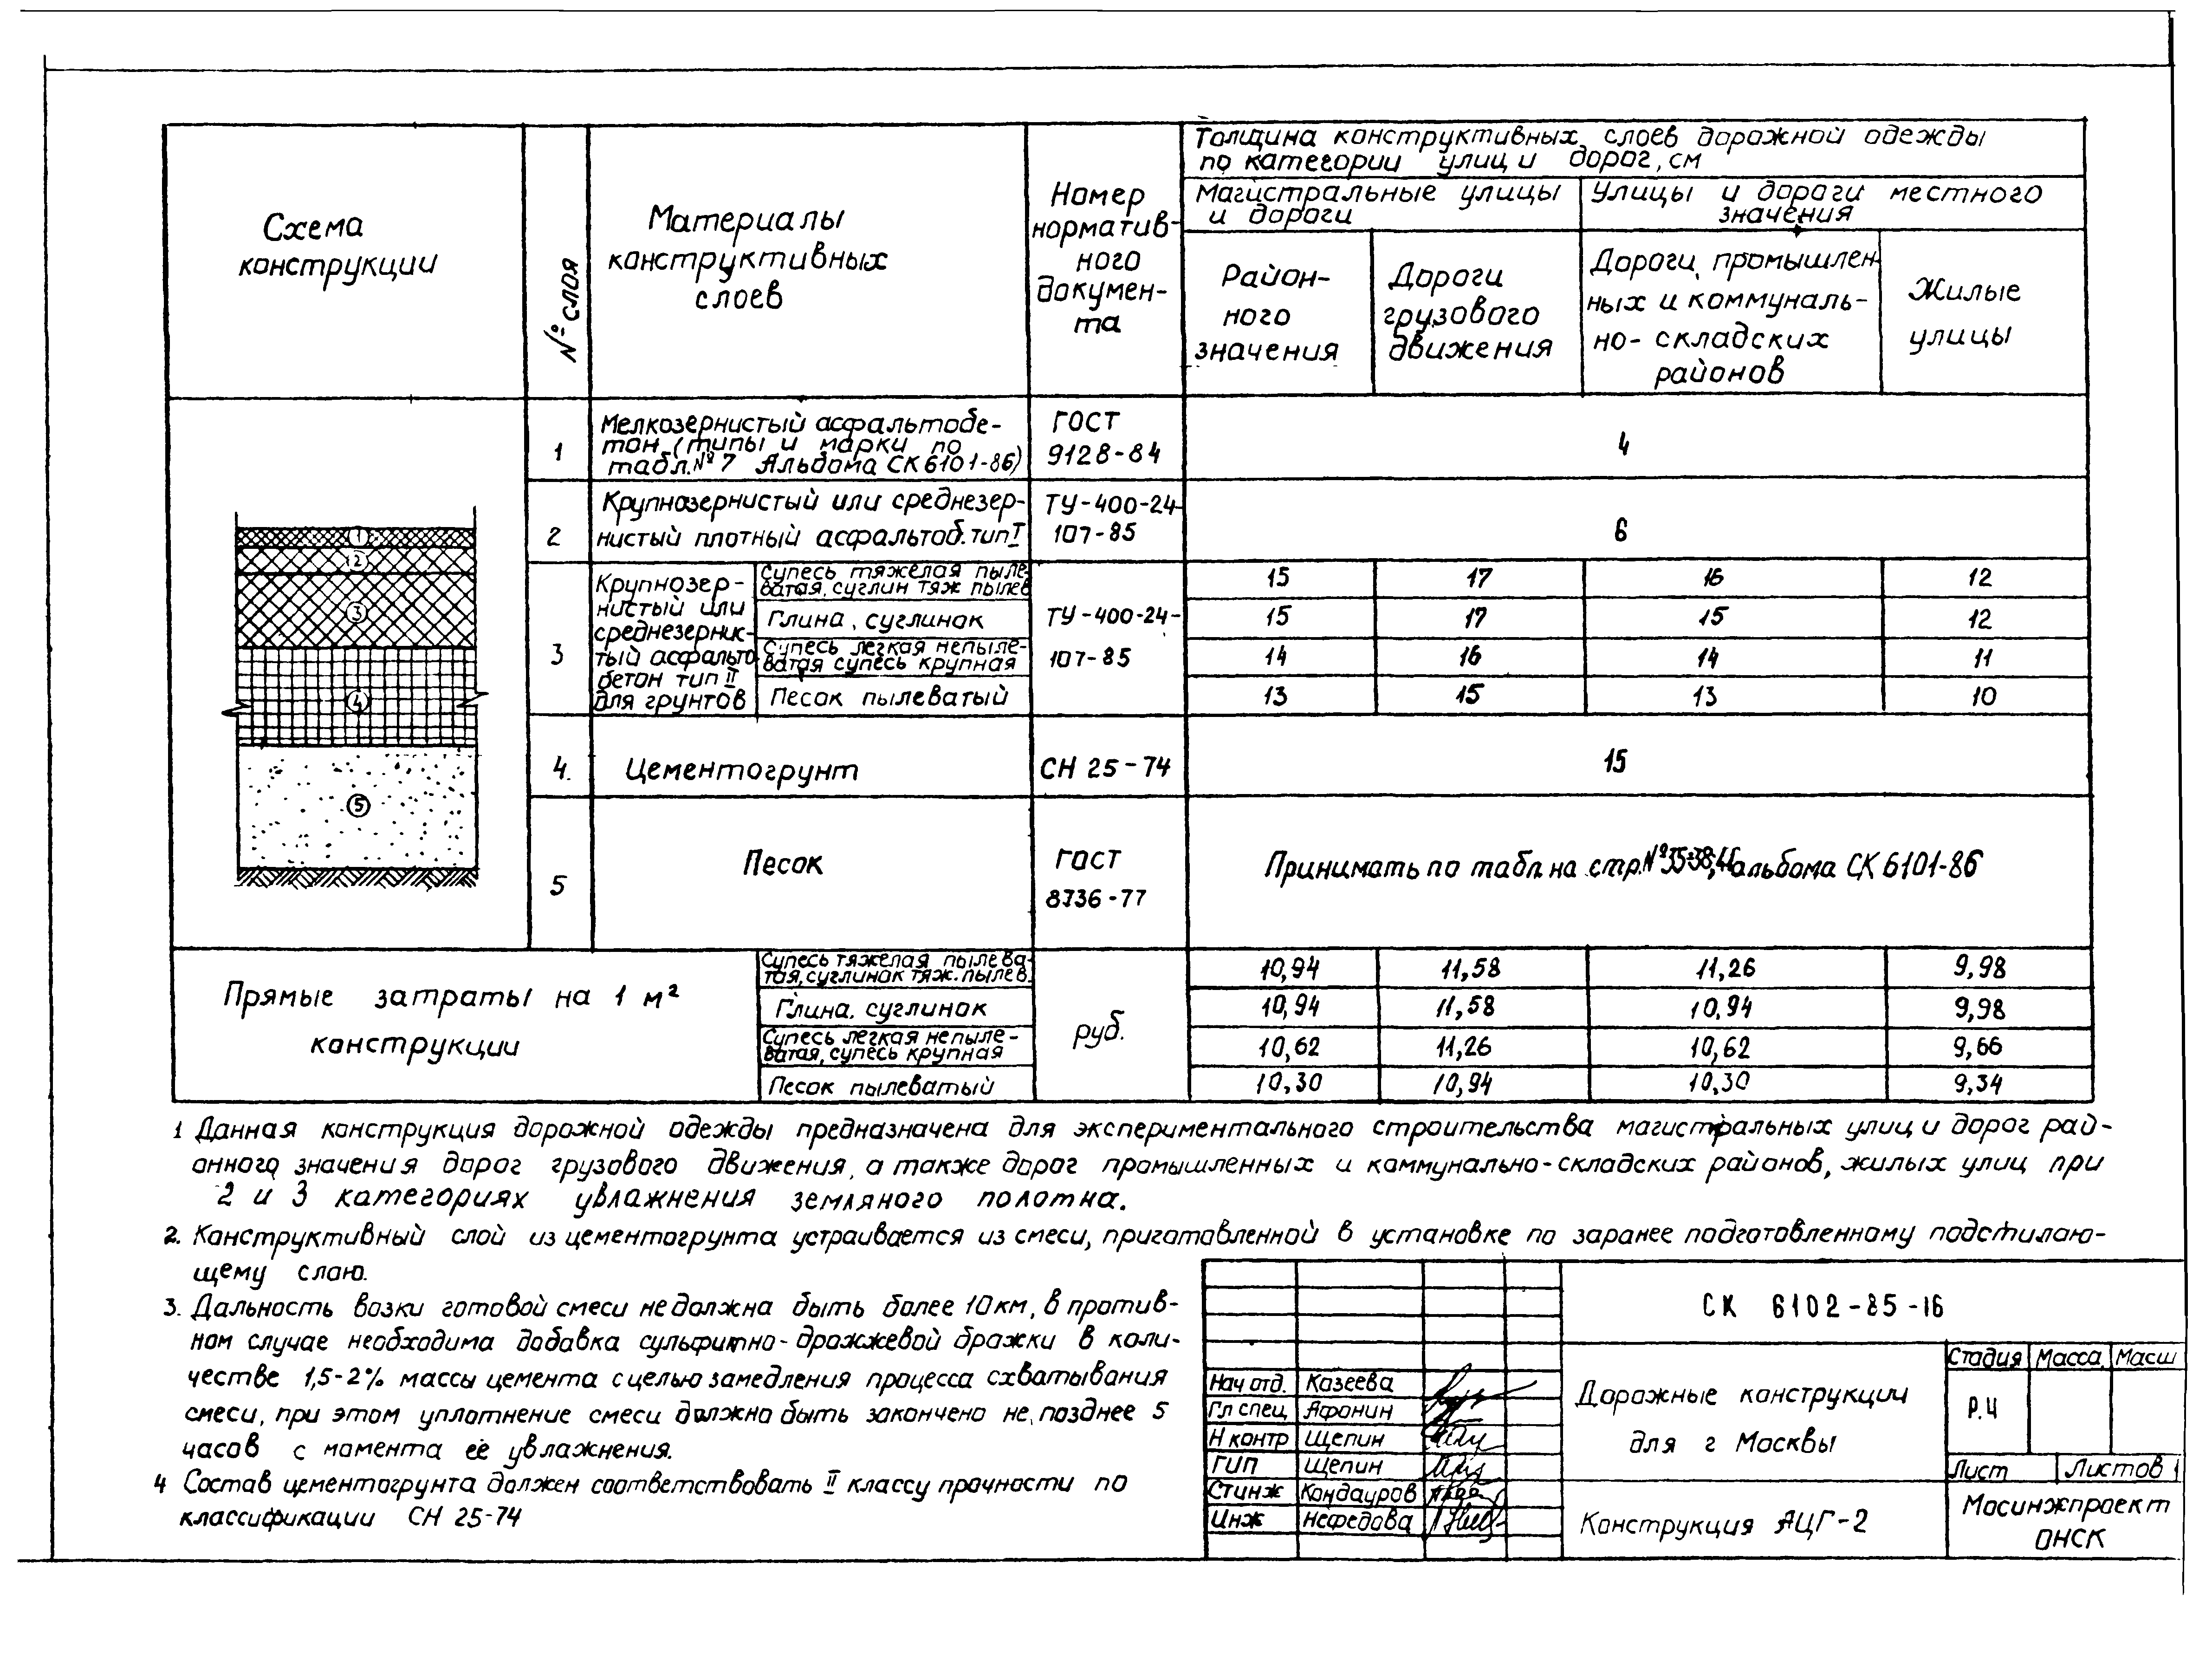 Схема
конструкции
№ слоя
Материалы
конструктивных
слоев
Номер
норматив-
ного
докумен-
та
Толщина конструктивных слоев дорожной одежды
по категории улиц и дорог, см
Магистральные улицы
и дороги
Улицы и дороги местного
значения
Район-
ного
значения
Дороги
грузового
движения
Дороги промышлен-
ных и коммуналь-
но-складских
районов
Жилые
улицы
1
Мелкозернистый асфальтобе-
тон (типы и марки по
табл. №7 Альбома СК 6101-86)
ГОСТ
9128-84
4
2
Крупнозернистый или среднезер-
нистый плотный асфальтоб. тип I
ТУ-400-24-
107-85
6
3
Крупнозер-
нистый или
среднезернис-
тый асфальто
бетон тип II
для грунтов
ТУ-400-24-
107-85
Супесь тяжелая пыле-
ватая, суглин тяж пылев
15 17 16 12
Глина, суглинок
15 17 15 12
Супесь легкая непыле-
ватая супесь крупная
14 16 14 11
Песок пылеватый
13 15 13 10
4.
Цементогрунт
СН 25-74
15
5
Песок
ГОСТ
8736-77
Принимать по табл. на стр. №35÷38, альбома СК 6101-86
1
2
3
4
5
Прямые затраты на 1 м²
конструкции
руб.
Супесь тяжелая пылева-
тая, суглинок тяж. пылев.
10,94 11,58 11,26 9,98
Глина. суглинок
10,94 11,58 10,94 9,98
Супесь легкая непыле-
ватая, супесь крупная
10,62 11,26 10,62 9,66
Песок пылеватый
10,30 10,94 10,30 9,34
1 Данная конструкция дорожной одежды предназначена для экспериментального строительства магистральных улиц и дорог рай-
онного значения дорог грузового движения, а также дорог промышленных и коммунально-складских районов, жилых улиц при
2 и 3 категориях увлажнения земляного полотна.
2. Конструктивный слой из цементогрунта устраивается из смеси, приготовленной в установке по заранее подготовленному подстилаю-
щему слою.
3. Дальность возки готовой смеси не должна быть более 10 км, в против-
ном случае необходима добавка сульфитно-дрожжевой бражки в коли-
честве 1,5-2% массы цемента с целью замедления процесса схватывания
смеси, при этом уплотнение смеси должно быть закончено не позднее 5
часов с момента её увлажнения.
4 Состав цементогрунта должен соответствовать II классу прочности по
классификации СН 25-74
СК 6102-85-16
Нач отд. Казеева
Гл спец Афонин
Н контр Щепин
ГИП Щепин
Ст инж Кондауров
Инж Нефедова
Дорожные конструкции
для г Москвы
Стадия Масса Масш
Р.Ч
Лист Листов 1
Конструкция АЦГ-2
Мосинжпроект
ОНСК